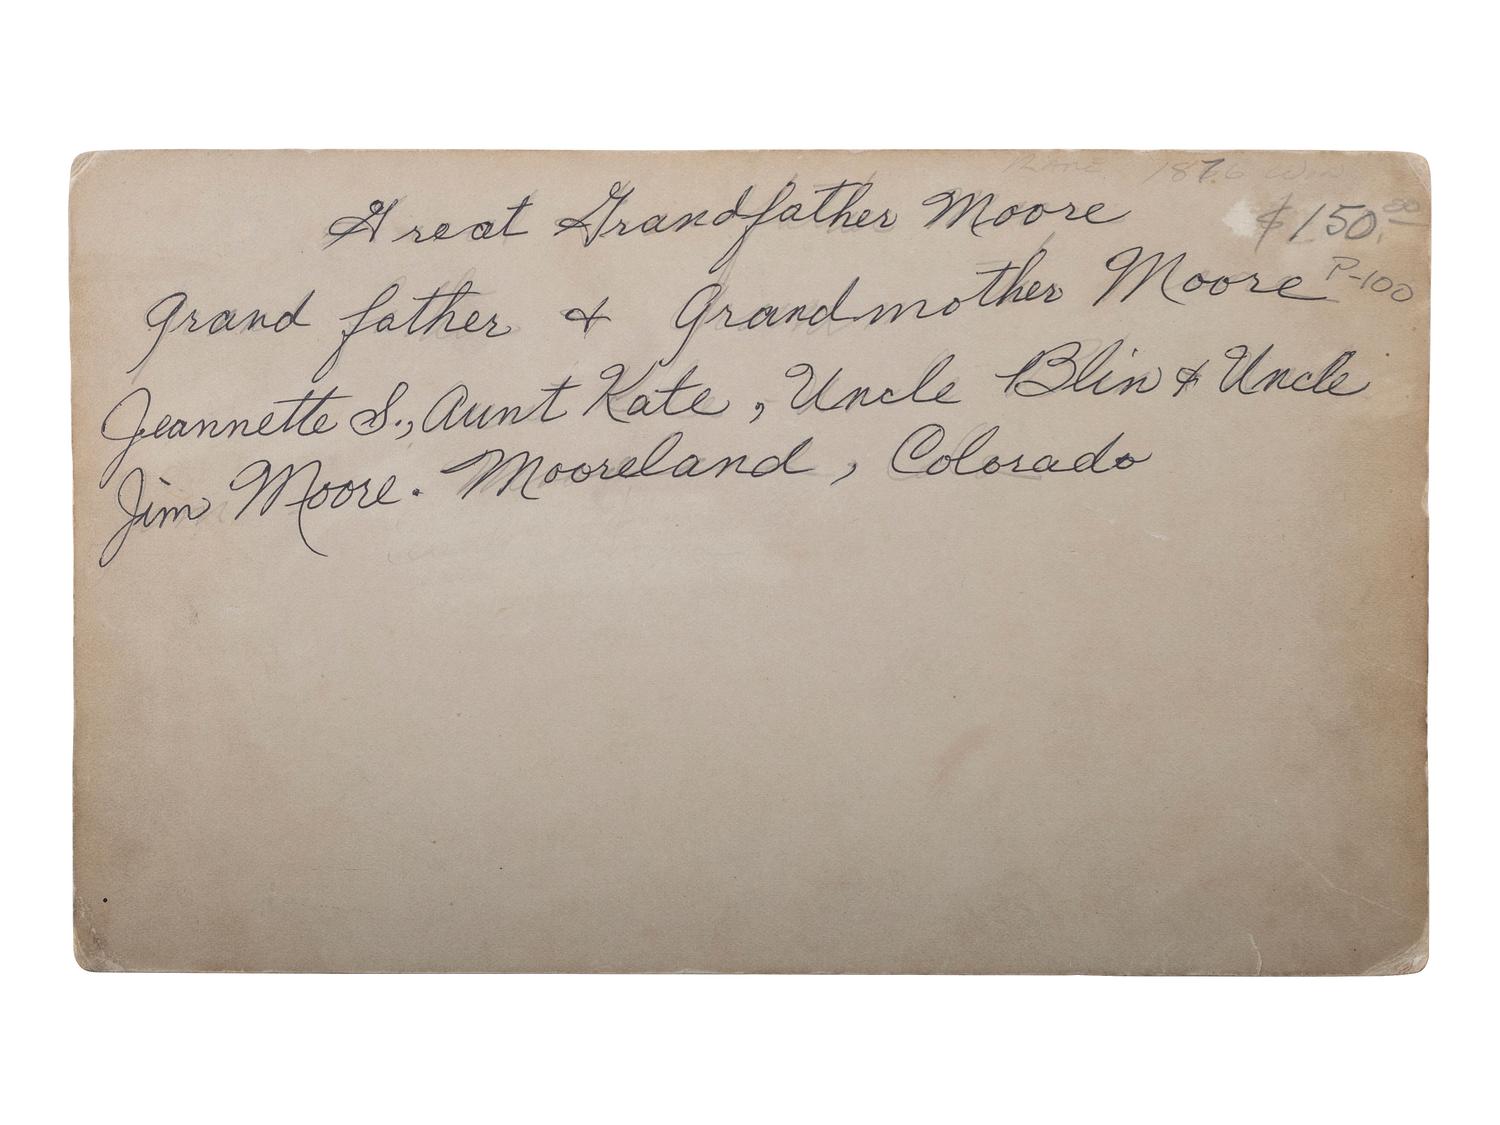 RARE 1876 WIN
Great Grandfather Moore
$150.00
P-100
Grand father & Grandmother Moore
Jeannette S., Aunt Kate, Uncle Blin & Uncle
Jim Moore. Mooreland, Colorado